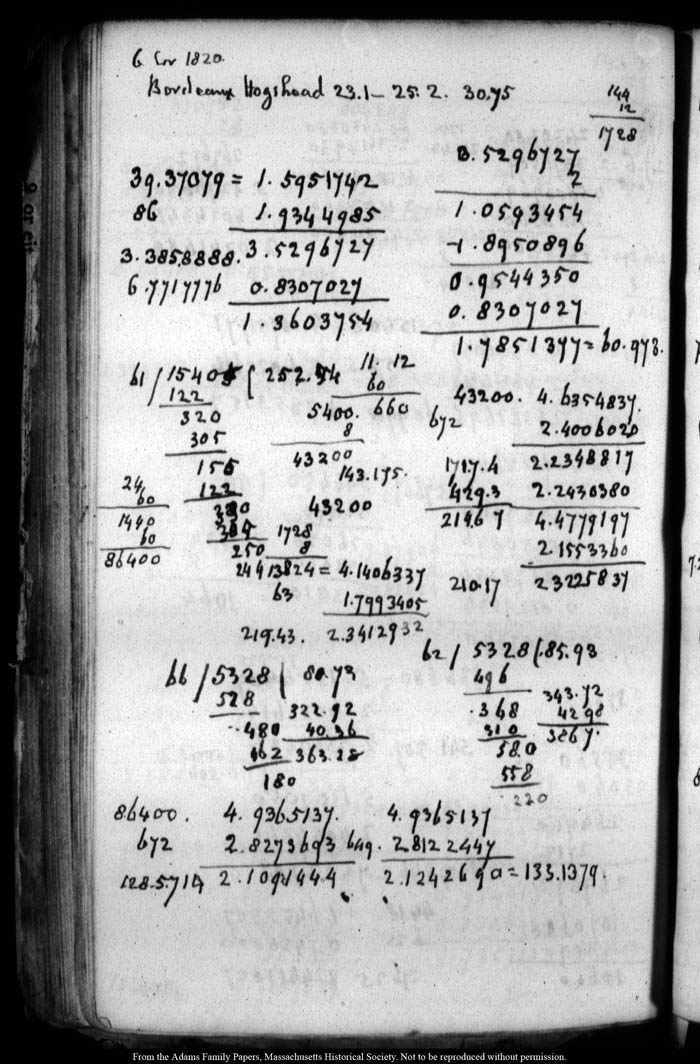 6 1820.
Bordeaux Hogshead 23.1 — 25.2. 30.75
144
12
1728
39.37079 = 1.5951742
86 1.9344985
3.3858888. 3.5296727
6.7717776 0.8307027
1.3603754
3.5296727
2
1.0593454
-1.8950896
0.9544350
0.8307027
1.7851377 = 60.973.
61 / 15405 ( 252.54
122
320
305
155
122
250
11. 12
60
5400. 660
8
43200
143.175.
43200
24
60
1440
60
86400
1728
8
13824 = 4.1406337
63 1.7993405
219.43. 2.3412932
43200. 4.6354837.
672 2.4006020
1717.4 2.2348817
429.3 2.2430380
2146.7 4.4779197
2.1553360
210.17 2.3225837
66 / 5328 ( 80.73
528
480
462
180
322.92
40.36
363.28
62 / 5328 ( 85.93
496
368
310
580
558
220
343.72
42.98
386.7.
86400. 4.9365137.
672 2.8273693
128.5714 2.1091444
4.9365137
649. 2.8122447
2.1242690 = 133.1379.
From the Adams Family Papers, Massachusetts Historical Society. Not to be reproduced without permission.